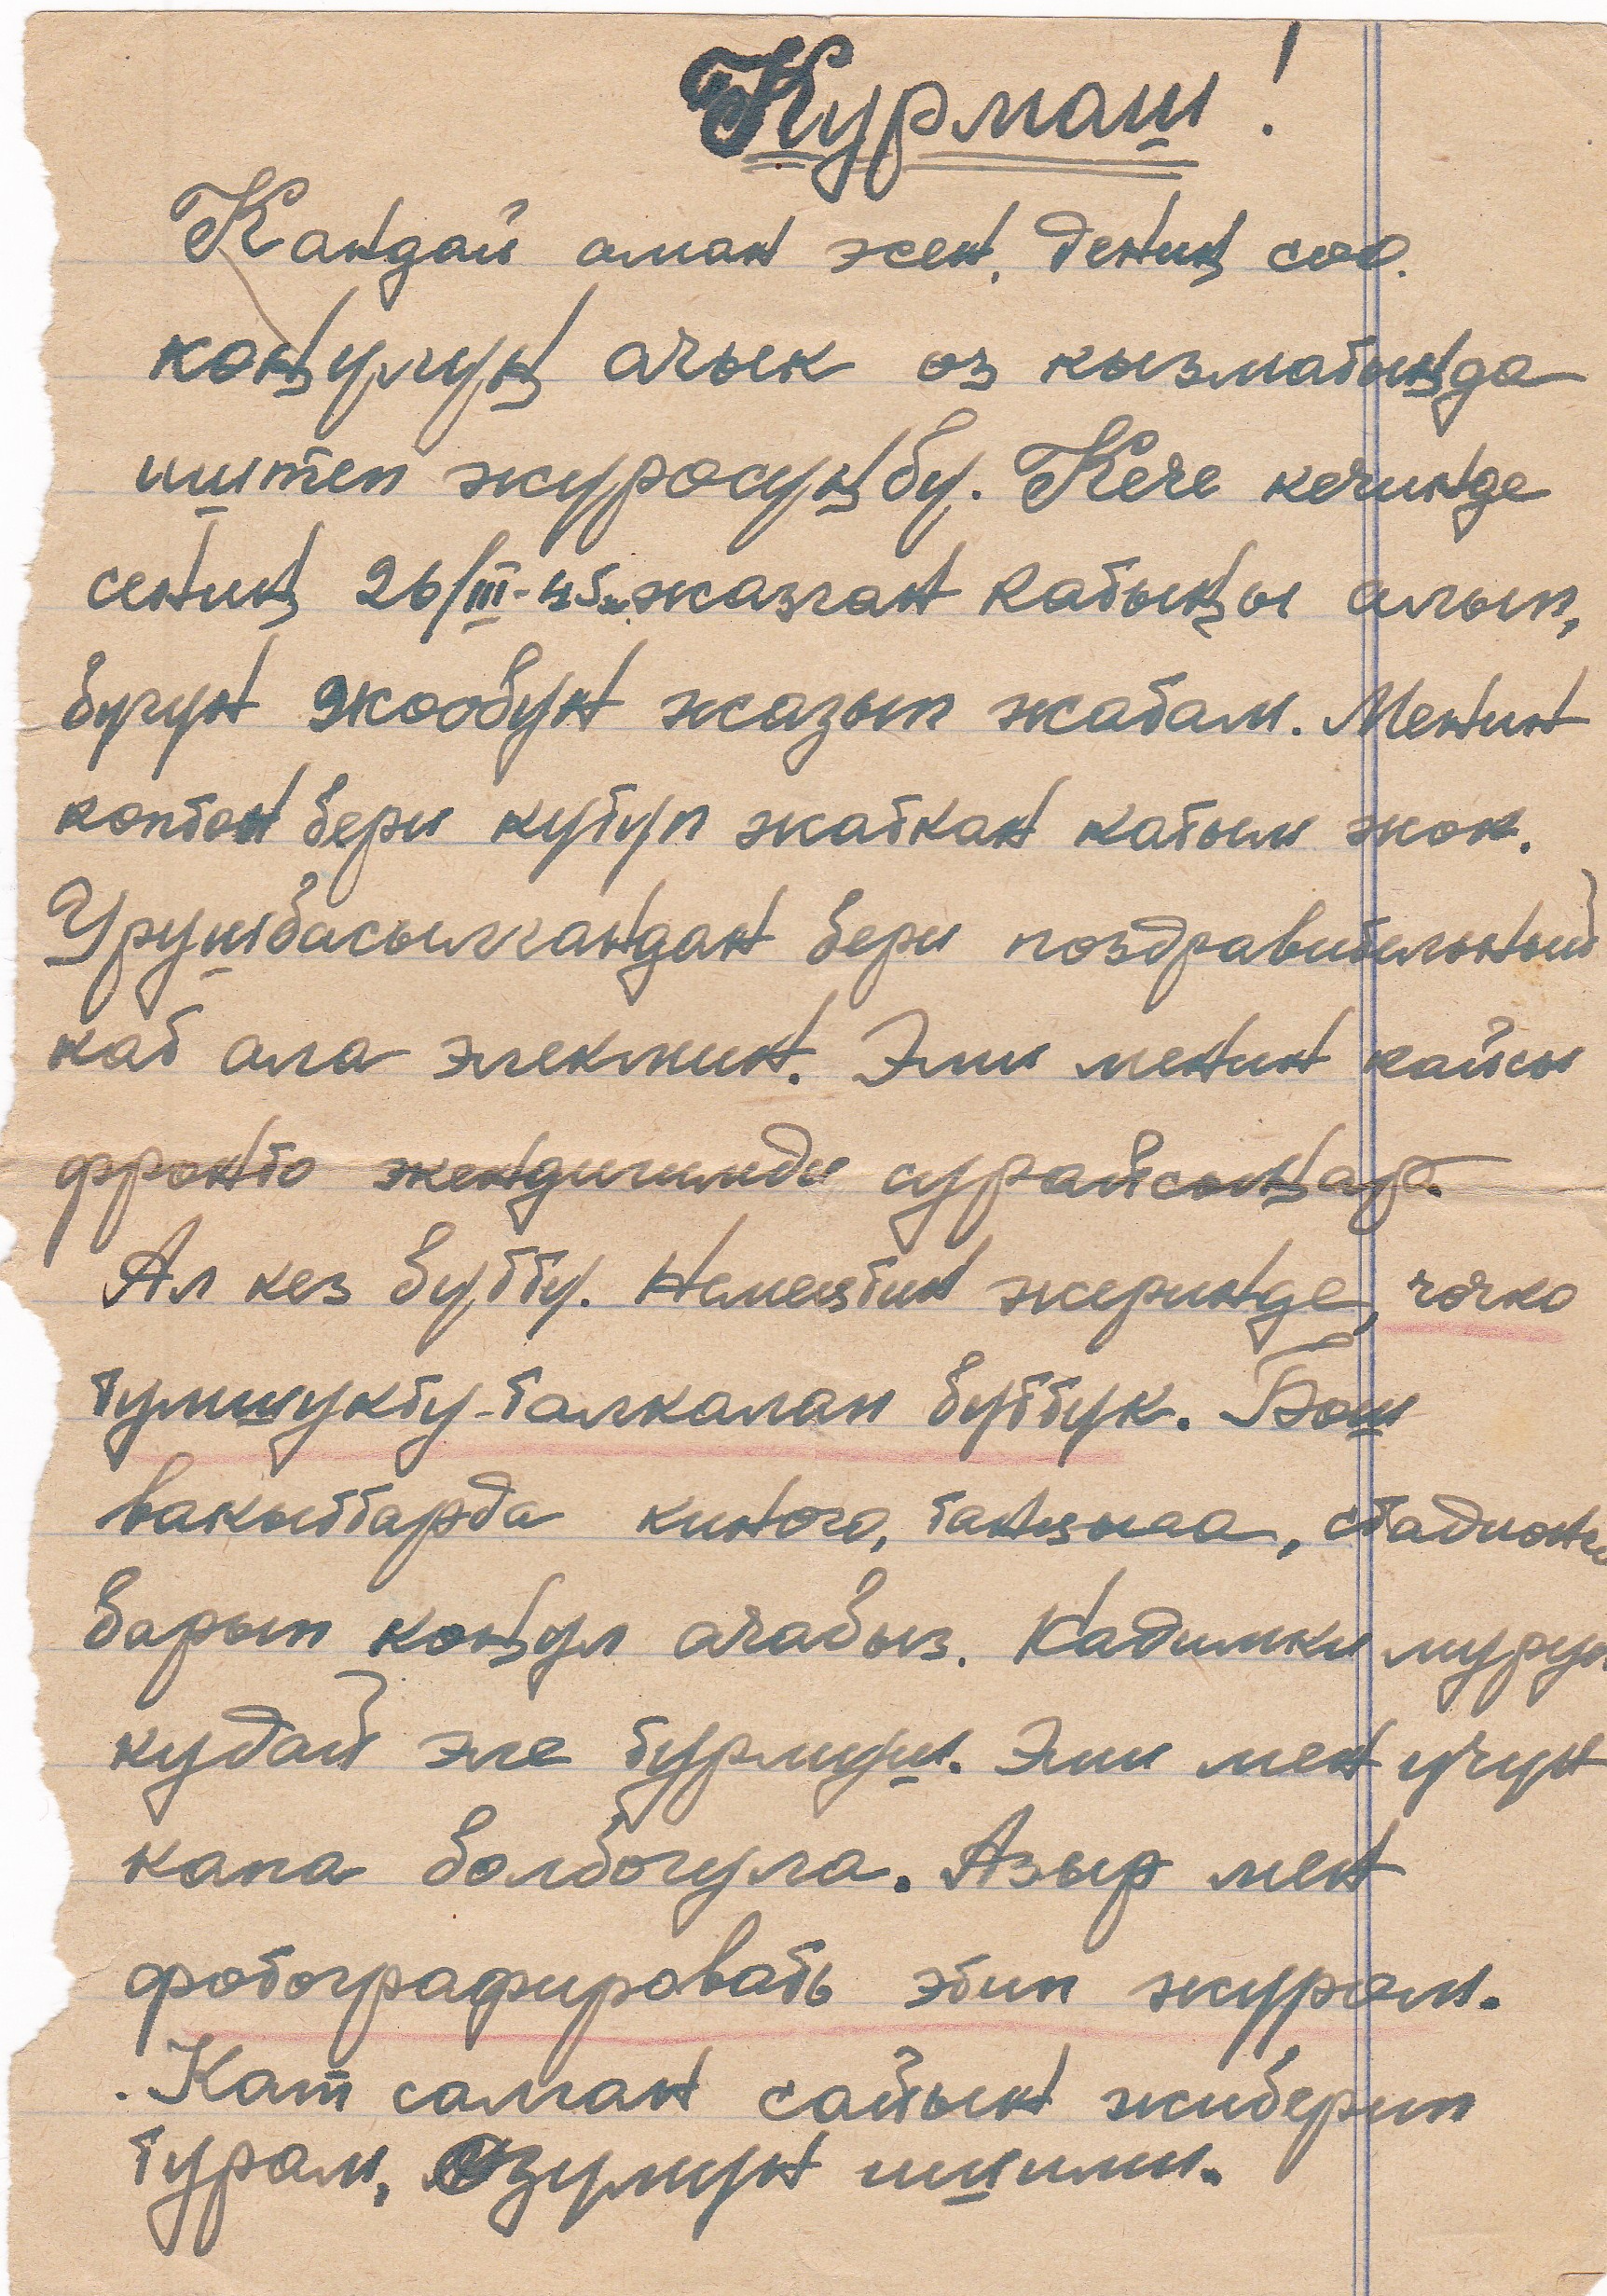 Курмаш!
Кандай аман эсен, дениң соо.
коңулуң ачык оз кызматыңда
иштеп журосуңбу. Кече кечинде
сениң 26/III-45ж. жазган катыңы алып,
бугун жообун жазып жатам. Менин
коптон бери кутуп жаткан катым жок.
Урушбасылгандан бери поздравительный
кат ала элекмин. Эми менин кайсы
фронто экендигимди сурайсыңар.
Ал кез бутту. Немецтин жеринде, чочко
тумшукту-талкалап буттук. Бош
вакыттарда киного, танцыга, стадионго
барып коңул ачабыз. Кадимки мурун
кудай эле турмуш. Эми мен учун
капа болбогула. Азыр мен
фотографировать этип журом.
Кат салган сайын жиберип
турам, озумун ишими.